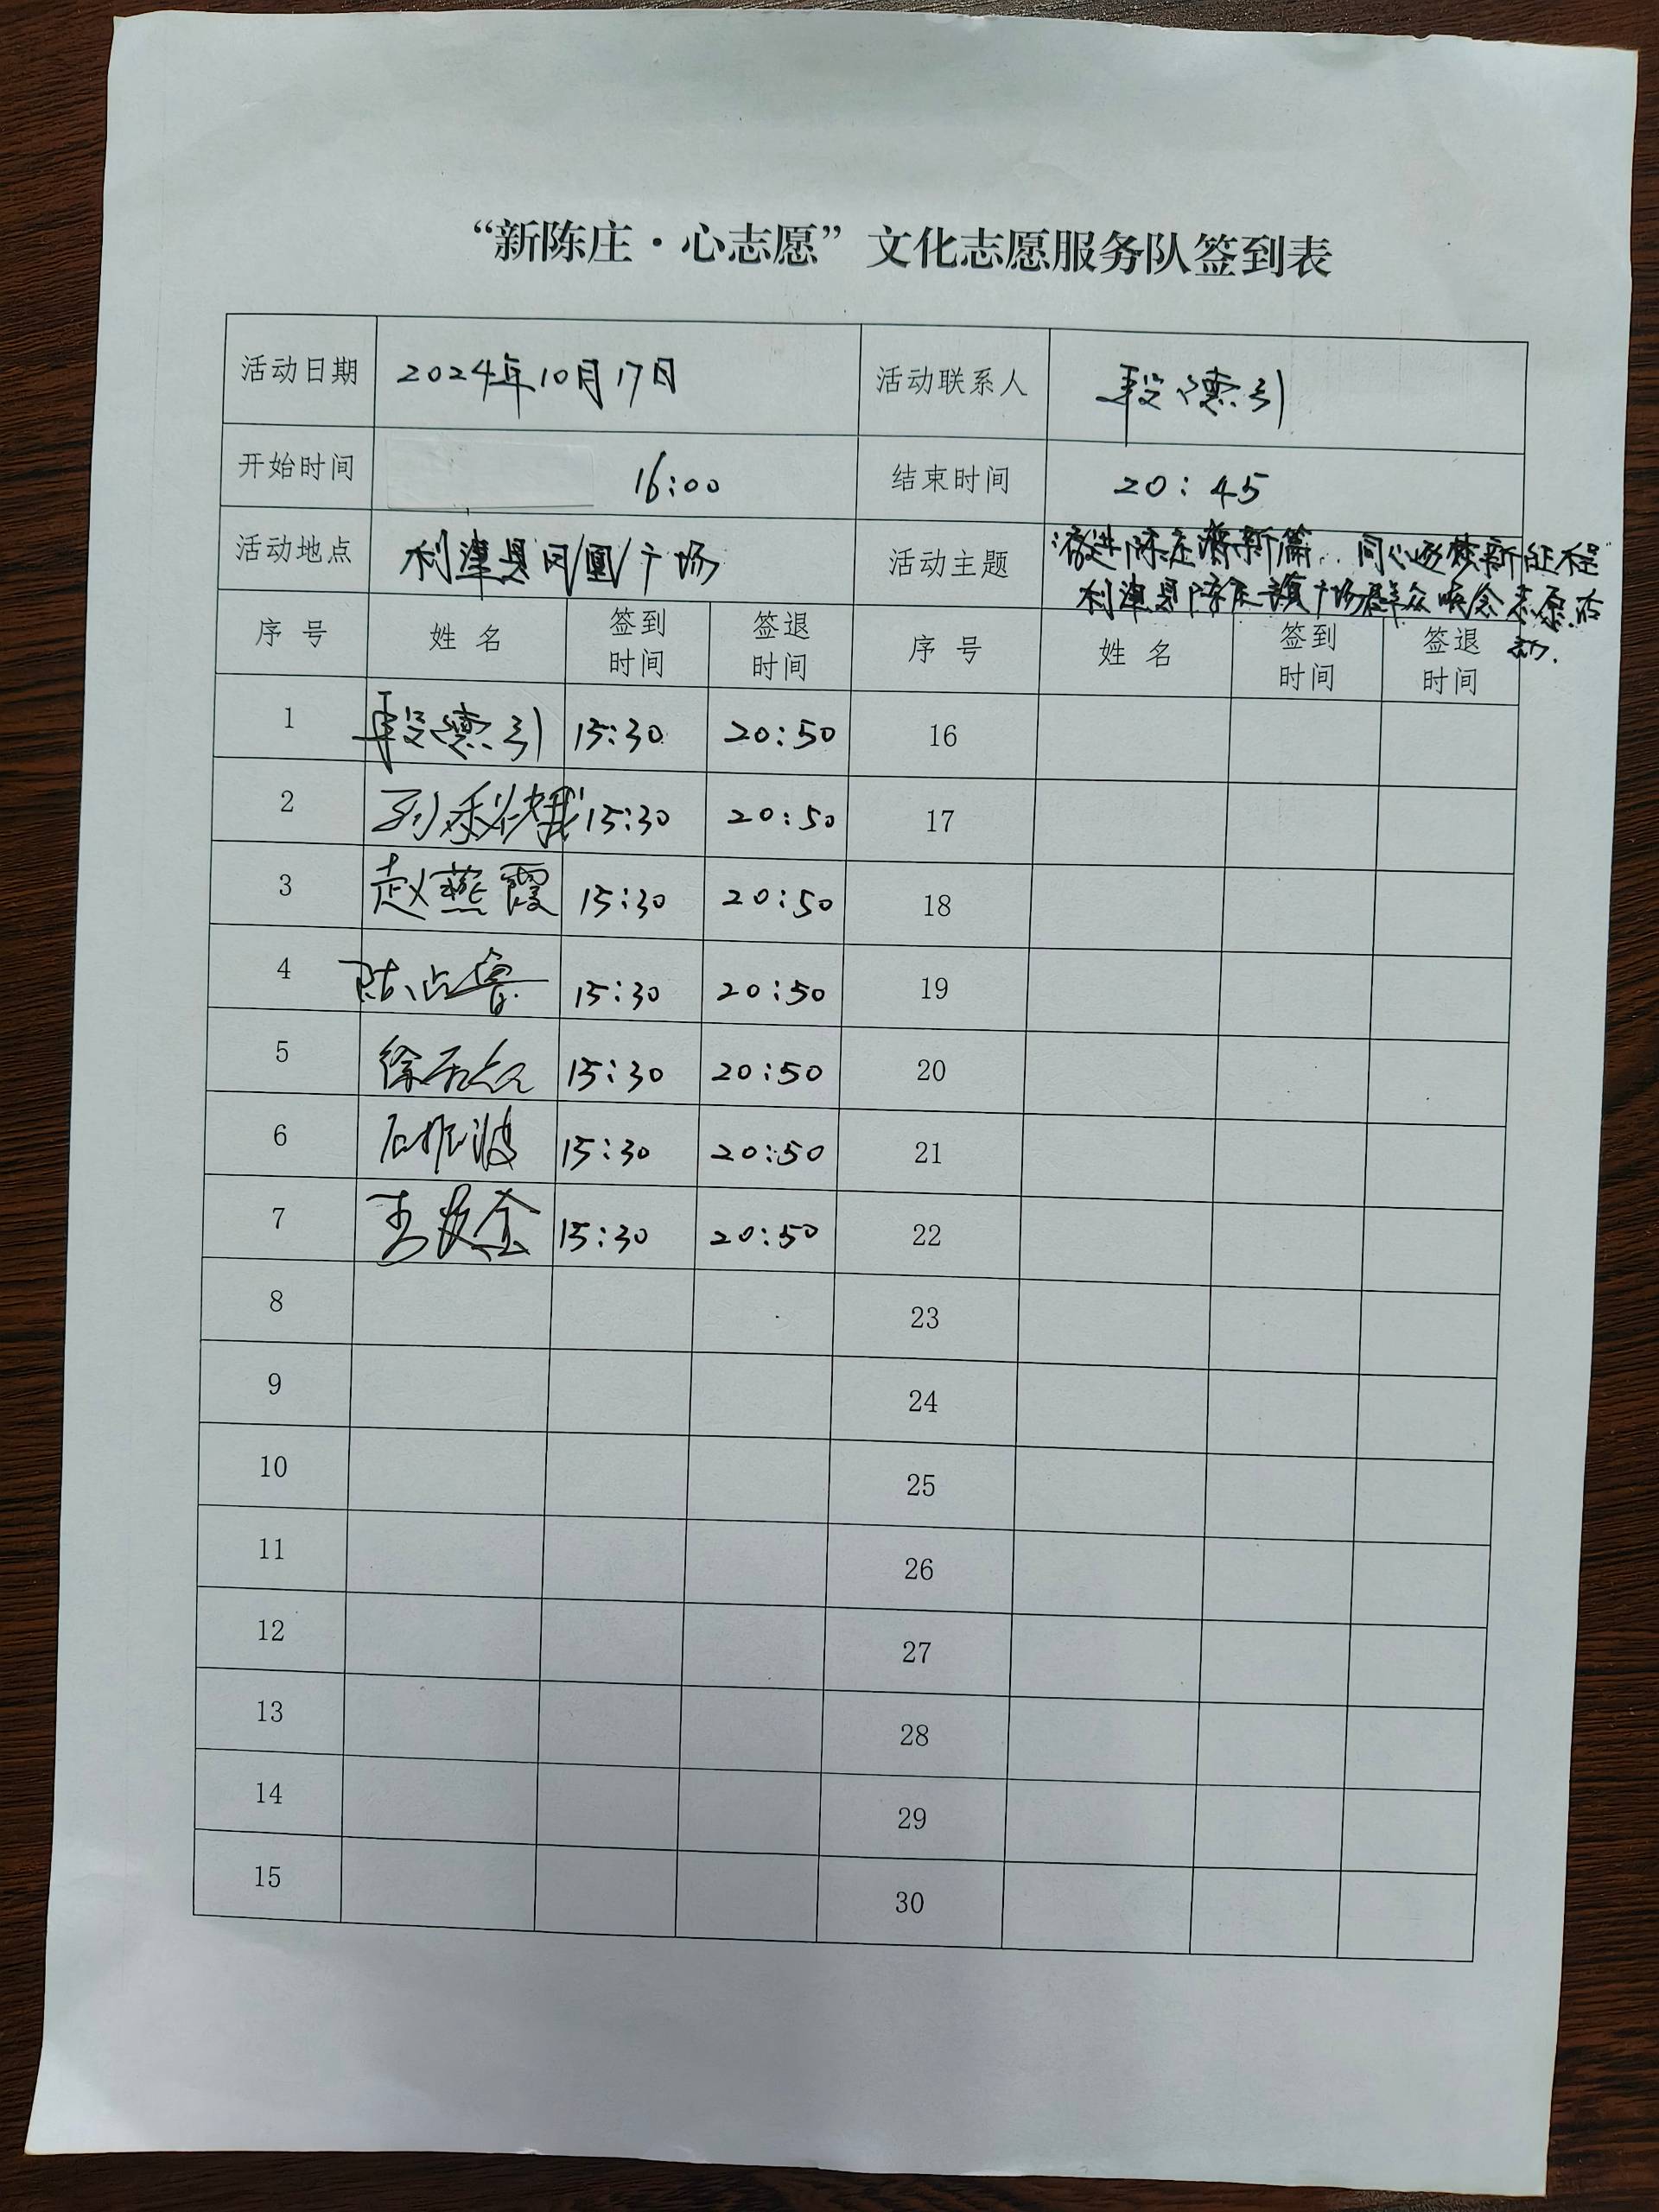 “新陈庄·心志愿”文化志愿服务队签到表
活动日期 2024年10月17日 活动联系人 段德引
开始时间 16:00 结束时间 20:45
活动地点 利津县凤凰广场 活动主题 陈庄 新篇 同心 新征程
利津县陈庄镇广场群众晚会志愿活
动.
序号 姓名 签到时间 签退时间 序号 姓名 签到时间 签退时间
1 段德引 15:30 20:50 16
2 15:30 20:50 17
3 赵燕霞 15:30 20:50 18
4 陈占鲁 15:30 20:50 19
5 徐 15:30 20:50 20
6 石振波 15:30 20:50 21
7 金 15:30 20:50 22
8 23
9 24
10 25
11 26
12 27
13 28
14 29
15 30